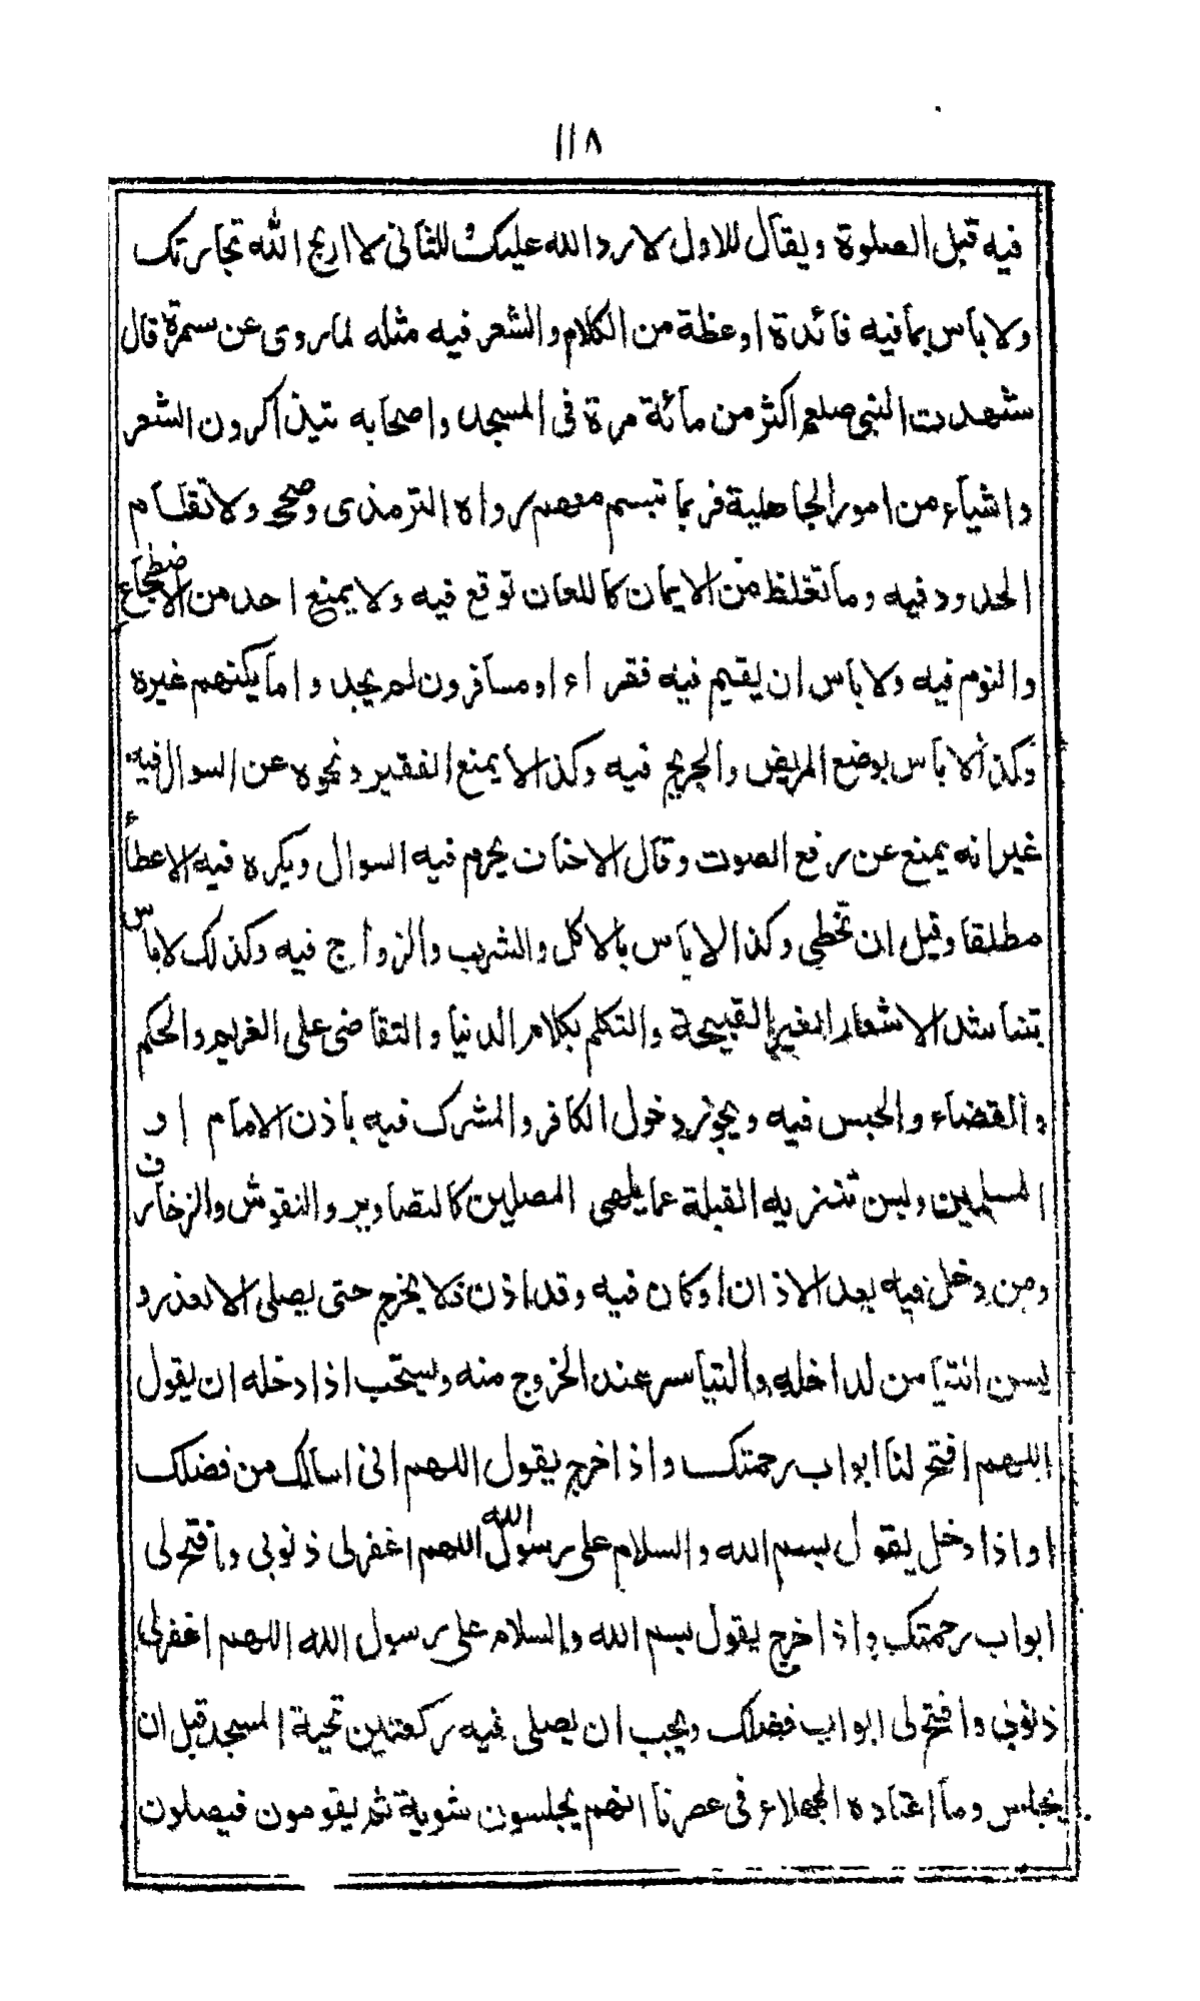 ١١٨
فيه قبل الصلوة ويقال للاول لا رد الله عليك وللثانى لا اربح الله تجارتك
ولا باس بما فيه فائدة او عظة من الكلام والشعر فيه مثله لما روى عن سمرة قال
شهدت النبى صلعم اكثر من مائة مرة فى المسجد واصحابه يتذاكرون الشعر
واشياء من امور الجاهلية فربما تبسم معهم رواه الترمذى وصححه ولا تقام
الحدود فيه وما تغلظ من الايمان كاللعان توقع فيه ولا يمنع احد من الاضطجاع
والنوم فيه ولا باس ان يقيم فيه فقراء او مسافرون لم يجدوا ما يكنهم غيره
وكذا لا باس بوضع المريض والجريح فيه وكذا لا يمنع الفقير ونحوه عن السوال فيه
غير انه يمنع عن رفع الصوت وقال الاحناف يحرم فيه السوال ويكره فيه الاعطاء
مطلقا وقيل ان تخطى وكذا لا باس بالاكل والشرب والزواج فيه وكذلك لا باس
بتناشد الاشعار الغير القبيحة والتكلم بكلام الدنيا والتقاضى على الغريم والحكم
والقضاء والحبس فيه ويجوز دخول الكافر والمشرك فيه باذن الامام او
المسلمين ويسن تنزيه القبلة عما يلهى المصلين كالتصاوير والنقوش والزخارف
ومن دخل فيه بعد الاذان او كان فيه وقد اذن فلا يخرج حتى يصلى الا بعذر و
يسن التيامن لداخله والتياسر عند الخروج منه ويستحب اذا دخله ان يقول
اللهم افتح لنا ابواب رحمتك واذا خرج يقول اللهم انى اسالك من فضلك
او اذا دخل يقول بسم الله والسلام على رسول الله اللهم اغفر لى ذنوبى وافتح لى
ابواب رحمتك واذا خرج يقول بسم الله والسلام على رسول الله اللهم اغفر لى
ذنوبى وافتح لى ابواب فضلك ويجب ان يصلى فيه ركعتين تحية المسجد قبل ان
يجلس وما اعتاده الجهلاء فى عصرنا انهم يجلسون شوية ثم يقومون فيصلون